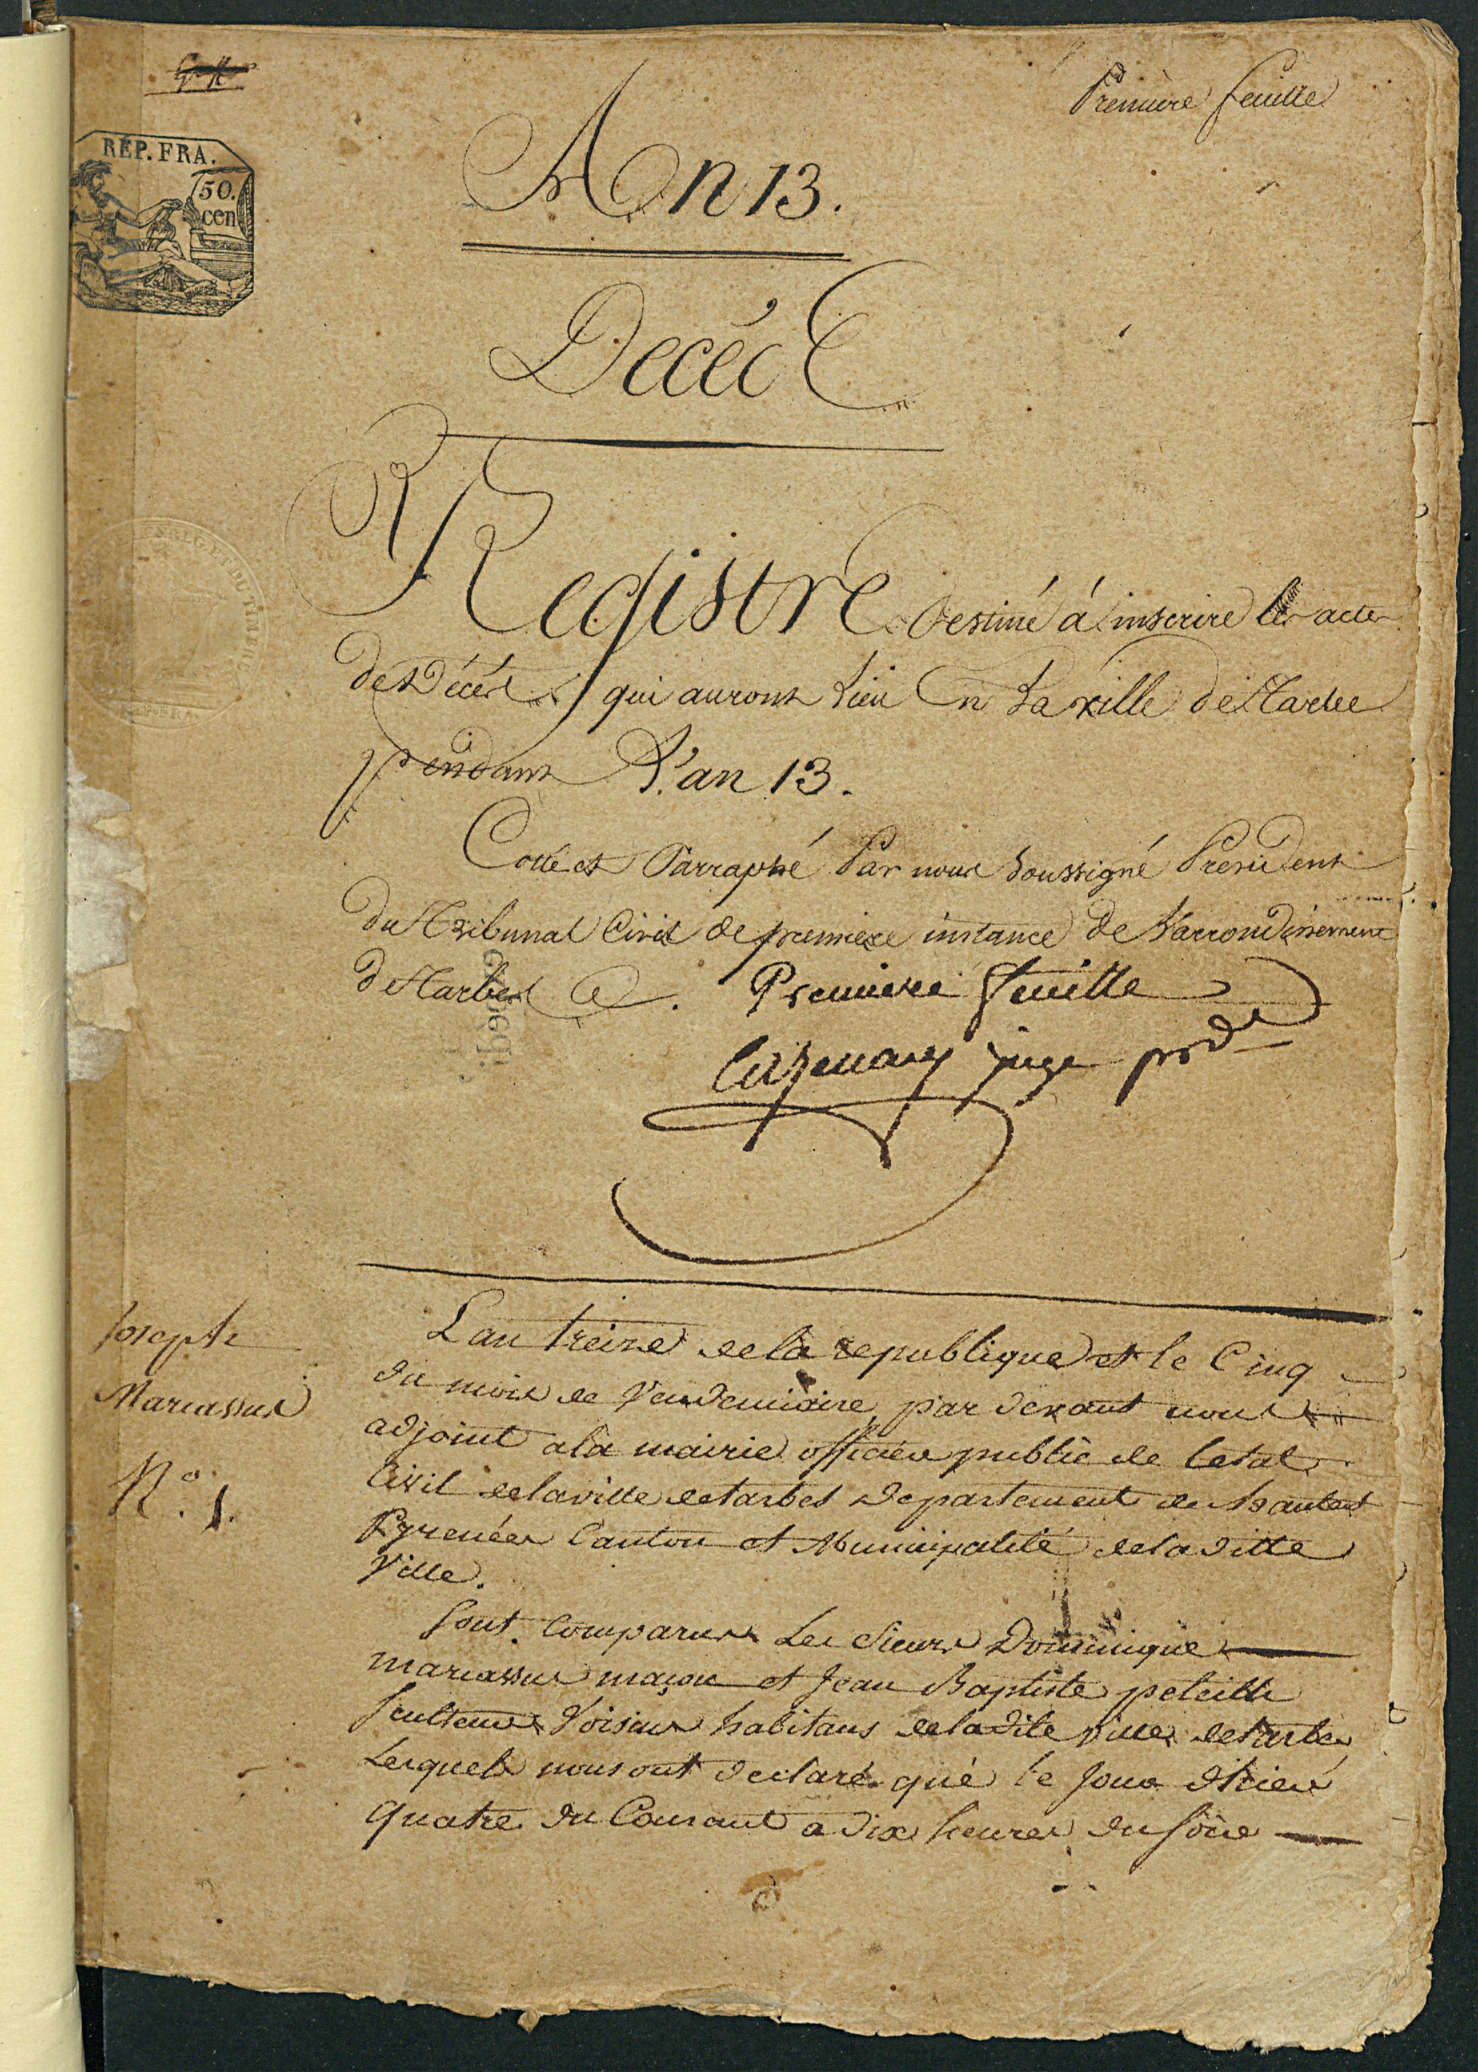 Première feuille
RÉP. FRA.
50.
cen
An 13.
Decéc
Registre Destiné à inscrire les actes
des Décès qui auront Lieu En La ville de Tarbes
pendant L'an 13.
Cotté et Parraphé Par nous Soussigné Président
du Tribunal Civil de première instance de L'arrondissement
de Tarbes
Première feuille
Cazenavy juge prdt
Joseph
Marcassus
N.º 1.
L'an treize de la republique et le Cinq
du mois de Vendemiaire, par devant nous
adjoint a la mairie officier public de letat
Civil de la ville de tarbes Departement des hautes
Pyrenées Canton et Municipalité de la ditte
Ville.
Sont Comparus Les Sieurs Dominique
marcassus maçon et Jean Baptiste peleille
Sculteur Voisins habitans de la dite ville de tarbes
Lesquels nous ont declaré que le Jour d'hier
quatre du Courant a dix heures du soir